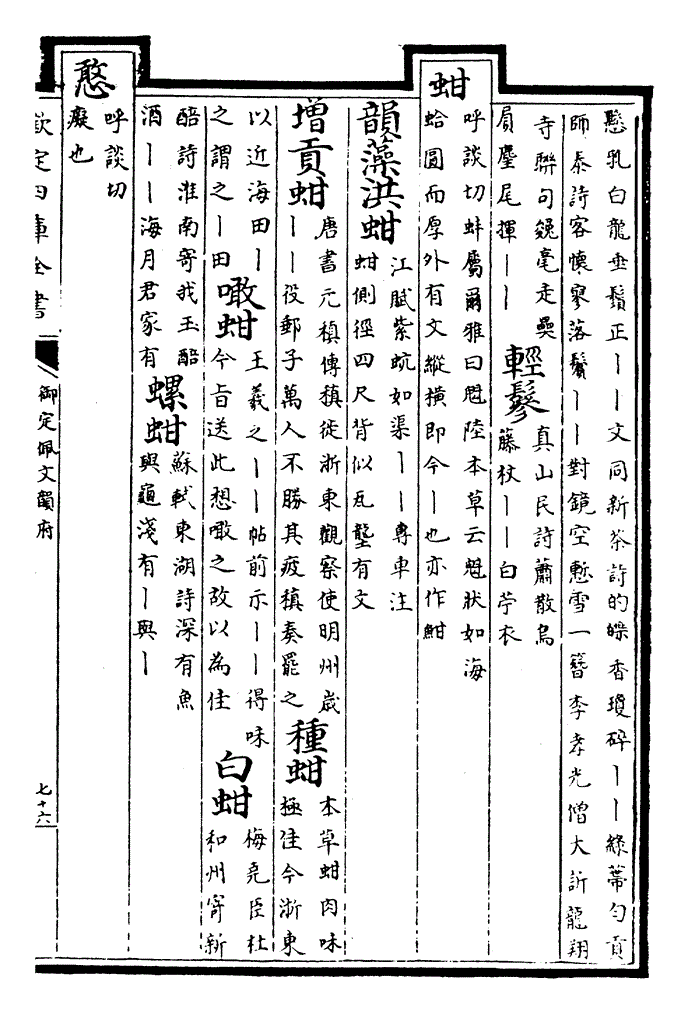 懸乳白龍垂鬚正丨丨文同新茶詩的皪香瓊碎丨丨綠蠆勻貢
師泰詩客懷寥落鬢丨丨對鏡空慙雪一簪李孝光僧大訢龍翔
寺聯句毚毫走奰
屓麈尾揮丨丨
輕鬖
真山民詩蕭散烏
藤杖丨丨白苧衣
蚶
呼談切蚌屬爾雅曰魁陸本草云魁狀如海
蛤圓而厚外有文縱橫即今丨也亦作魽
韻藻洪蚶
江賦紫蚢如渠丨丨專車注
蚶側徑四尺背似瓦壟有文
增貢蚶
唐書元稹傳稹徙浙東觀察使明州歲
丨丨役郵子萬人不勝其疲稹奏罷之
種蚶
本草蚶肉味
極佳今浙東
以近海田丨
之謂之丨田
噉蚶
王羲之丨丨帖前示丨丨得味
今旨送此想噉之故以為佳
白蚶
梅堯臣杜
和州寄新
醅詩淮南寄我玉醅
酒丨丨海月君家有
螺蚶
蘇軾東湖詩深有魚
與龜淺有丨與丨
憨
呼談切
癡也
欽定四庫全書
御定佩文韻府
七十六